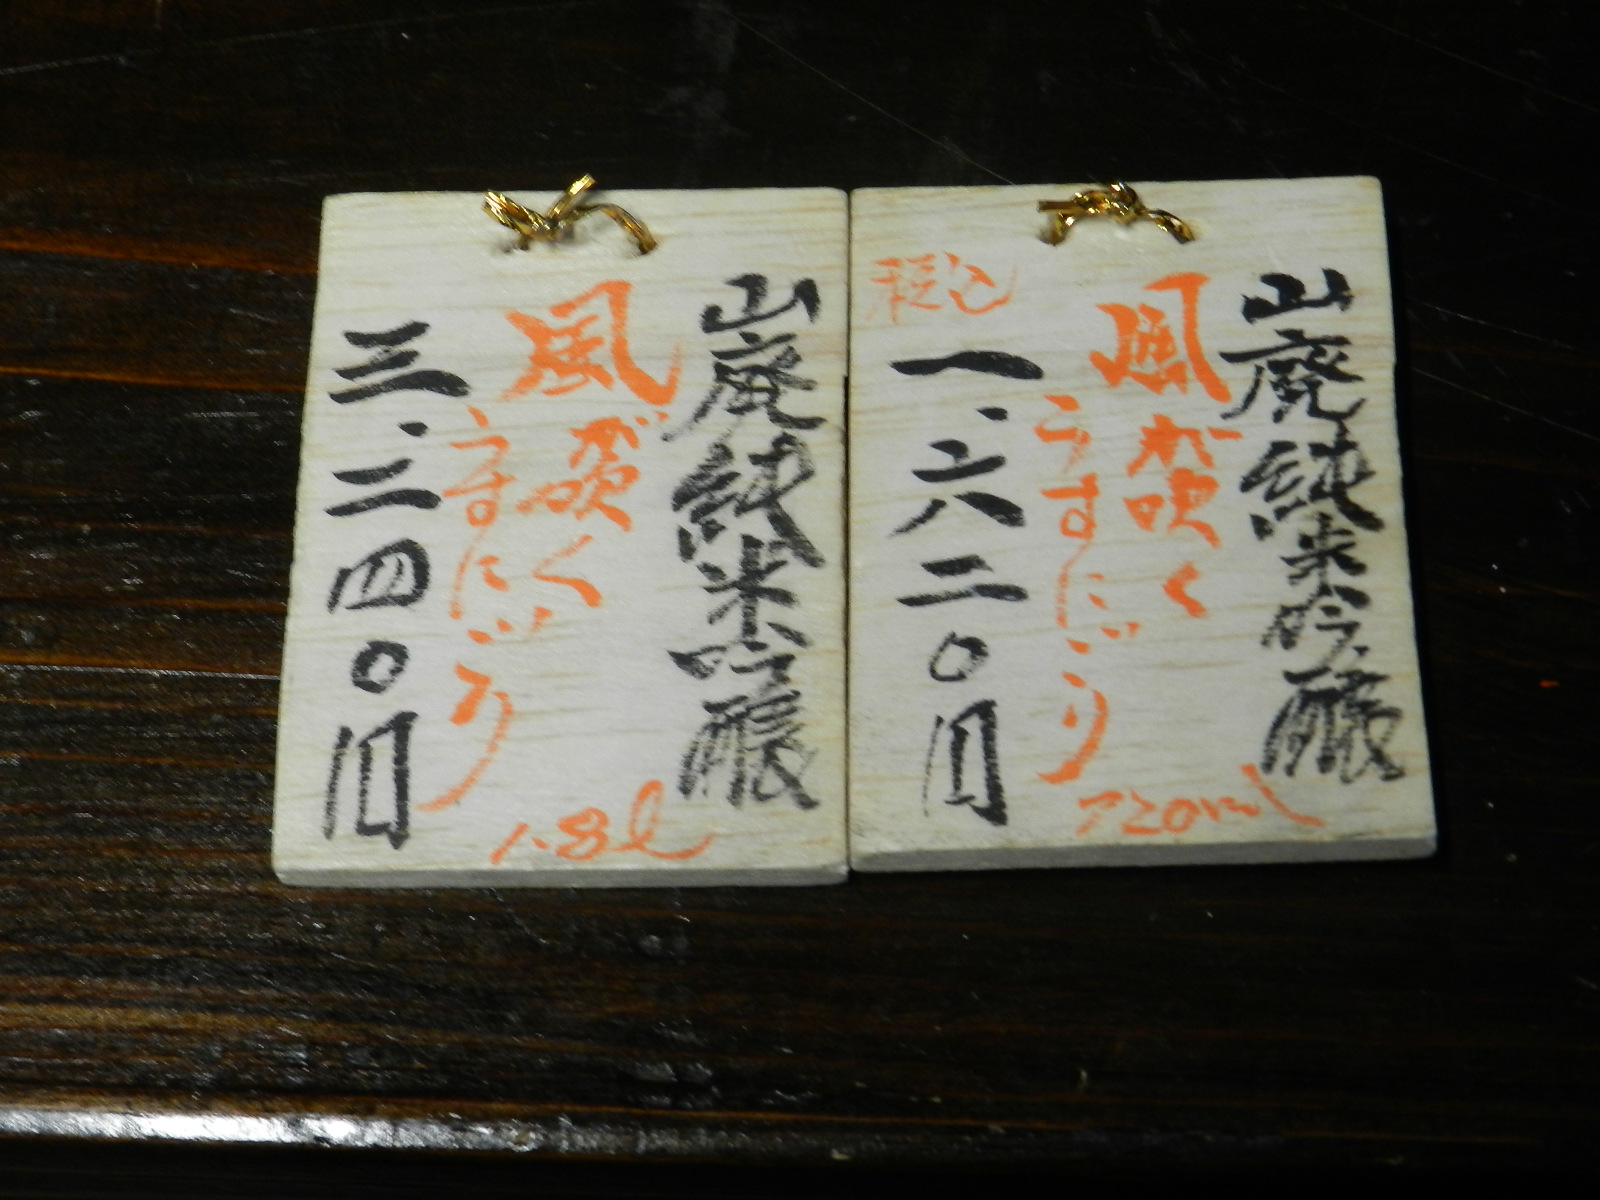 山廃純米吟醸
風が吹く
うすにごり
720ml
税込
一、六二〇円
山廃純米吟醸
風が吹く
うすにごり
1.8l
三、二四〇円